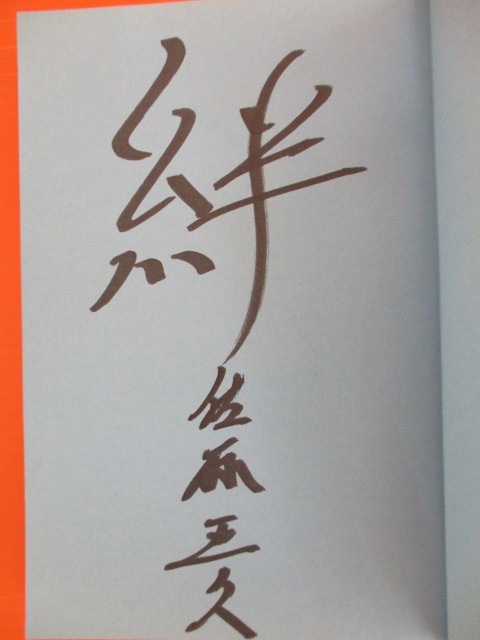 絆
佐藤正久